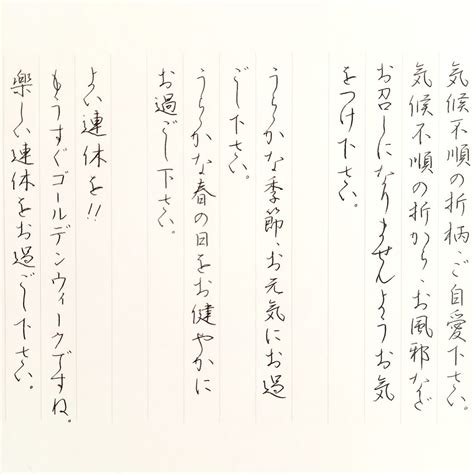 気候不順の折柄、ご自愛下さい。
気候不順の折から、お風邪など
お召しになりませんようお気
をつけ下さい。
うららかな季節、お元気にお過
ごし下さい。
うららかな春の日をお健やかに
お過ごし下さい。
よい連休を!!
もうすぐゴールデンウィークですね。
楽しい連休をお過ごし下さい。